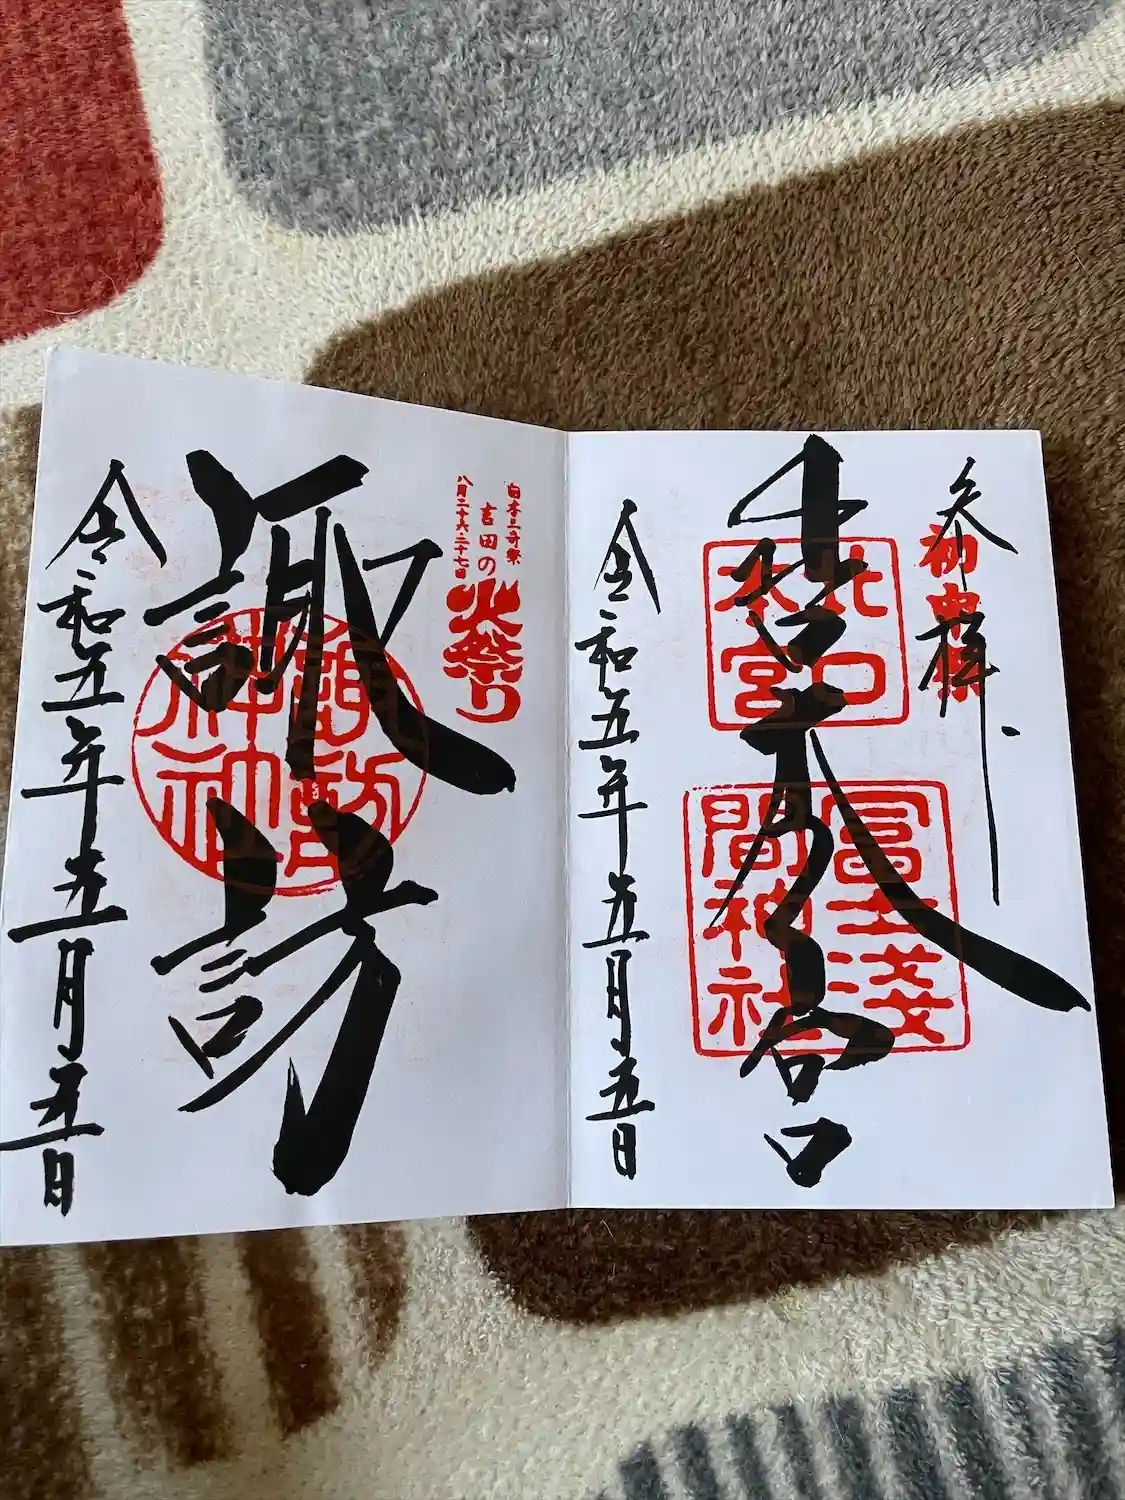 参拝
初申
北口
本宮
冨士淺
間神社
令和五年五月五日
日本三奇祭
吉田の
火祭り
八月二十六、二十七日
諏訪
諏訪
神社
令和五年五月五日